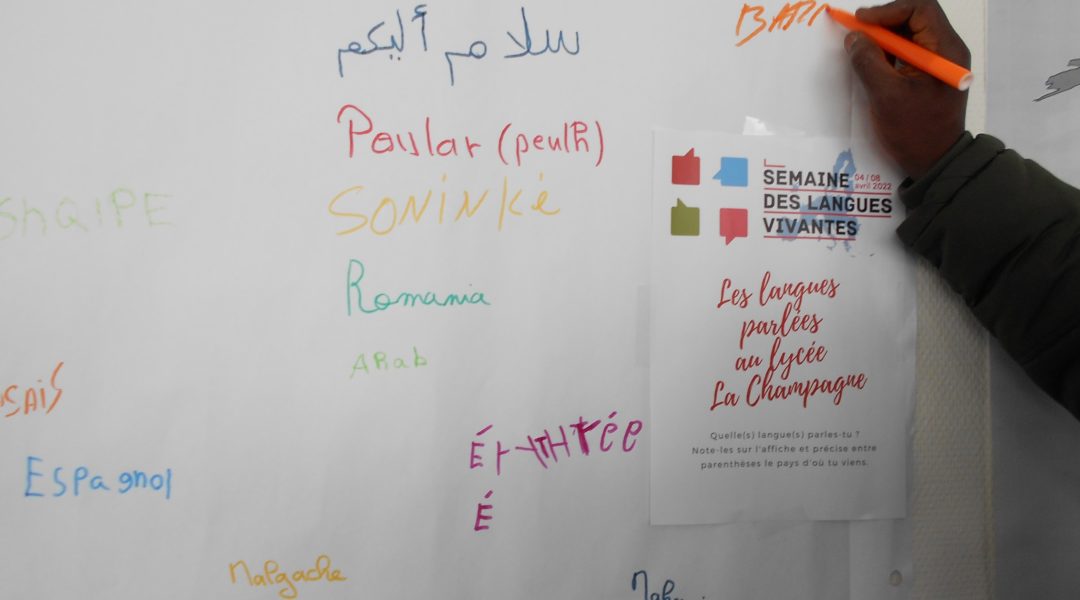 سلام أليكم
Poular (peulh)
SONINKÉ
SHQIPE
Romania
ARab
Espagnol
É
Malgache
SEMAINE
04 / 08
avril 2022
DES LANGUES
VIVANTES
Les langues
parlées
au lycée
La Champagne
Quelle(s) langue(s) parles-tu ?
Note-les sur l'affiche et précise entre
parenthèses le pays d'où tu viens.